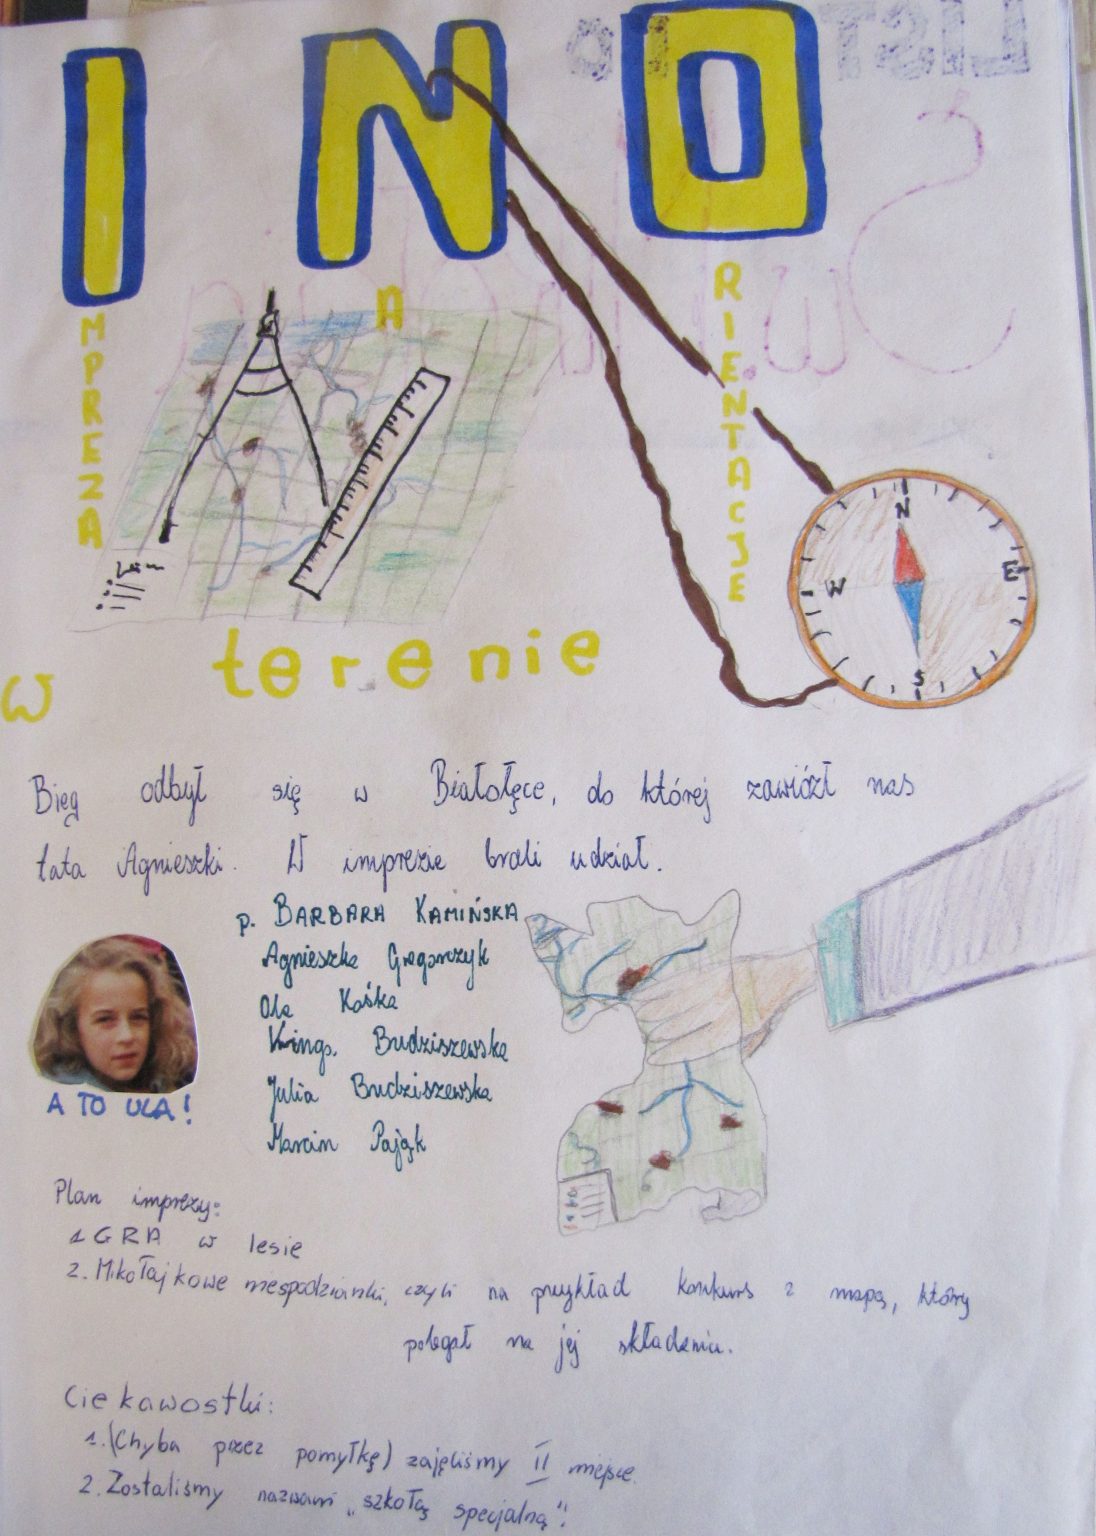 INO
IMPREZA
NA
ORIENTACJE
w terenie
N
E
W
S
Bieg odbył się w Białołęce, do której zawiózł nas
tata Agnieszki. W imprezie brali udział.
p. BARBARA KAMIŃSKA
Agnieszka Gregorczyk
Ola Kośka
Kinga Budziszewska
Julia Budziszewska
Marcin Pająk
A TO ULA!
Plan imprezy:
1 GRA w lesie
2. Mikołajkowe niespodzianki, czyli na przykład konkurs z mapą, który
polegał na jej składaniu.
Ciekawostki:
1. (Chyba przez pomyłkę) zajęliśmy II miejsce
2. Zostaliśmy nazwani „szkołą specjalną"!